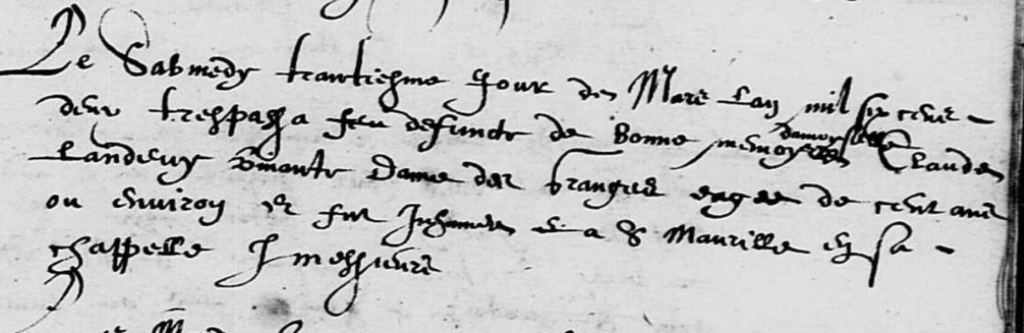 Le Sabmedy trantiesme Jour de Mars Lan mil six cens
deux trespassa feu defuncte de bonne memoyre damoyselle Claude
Landevy vivante dame des Granges eagee de cent ans
ou environ et fut Inhumee a St Maurille en sa
chappelle